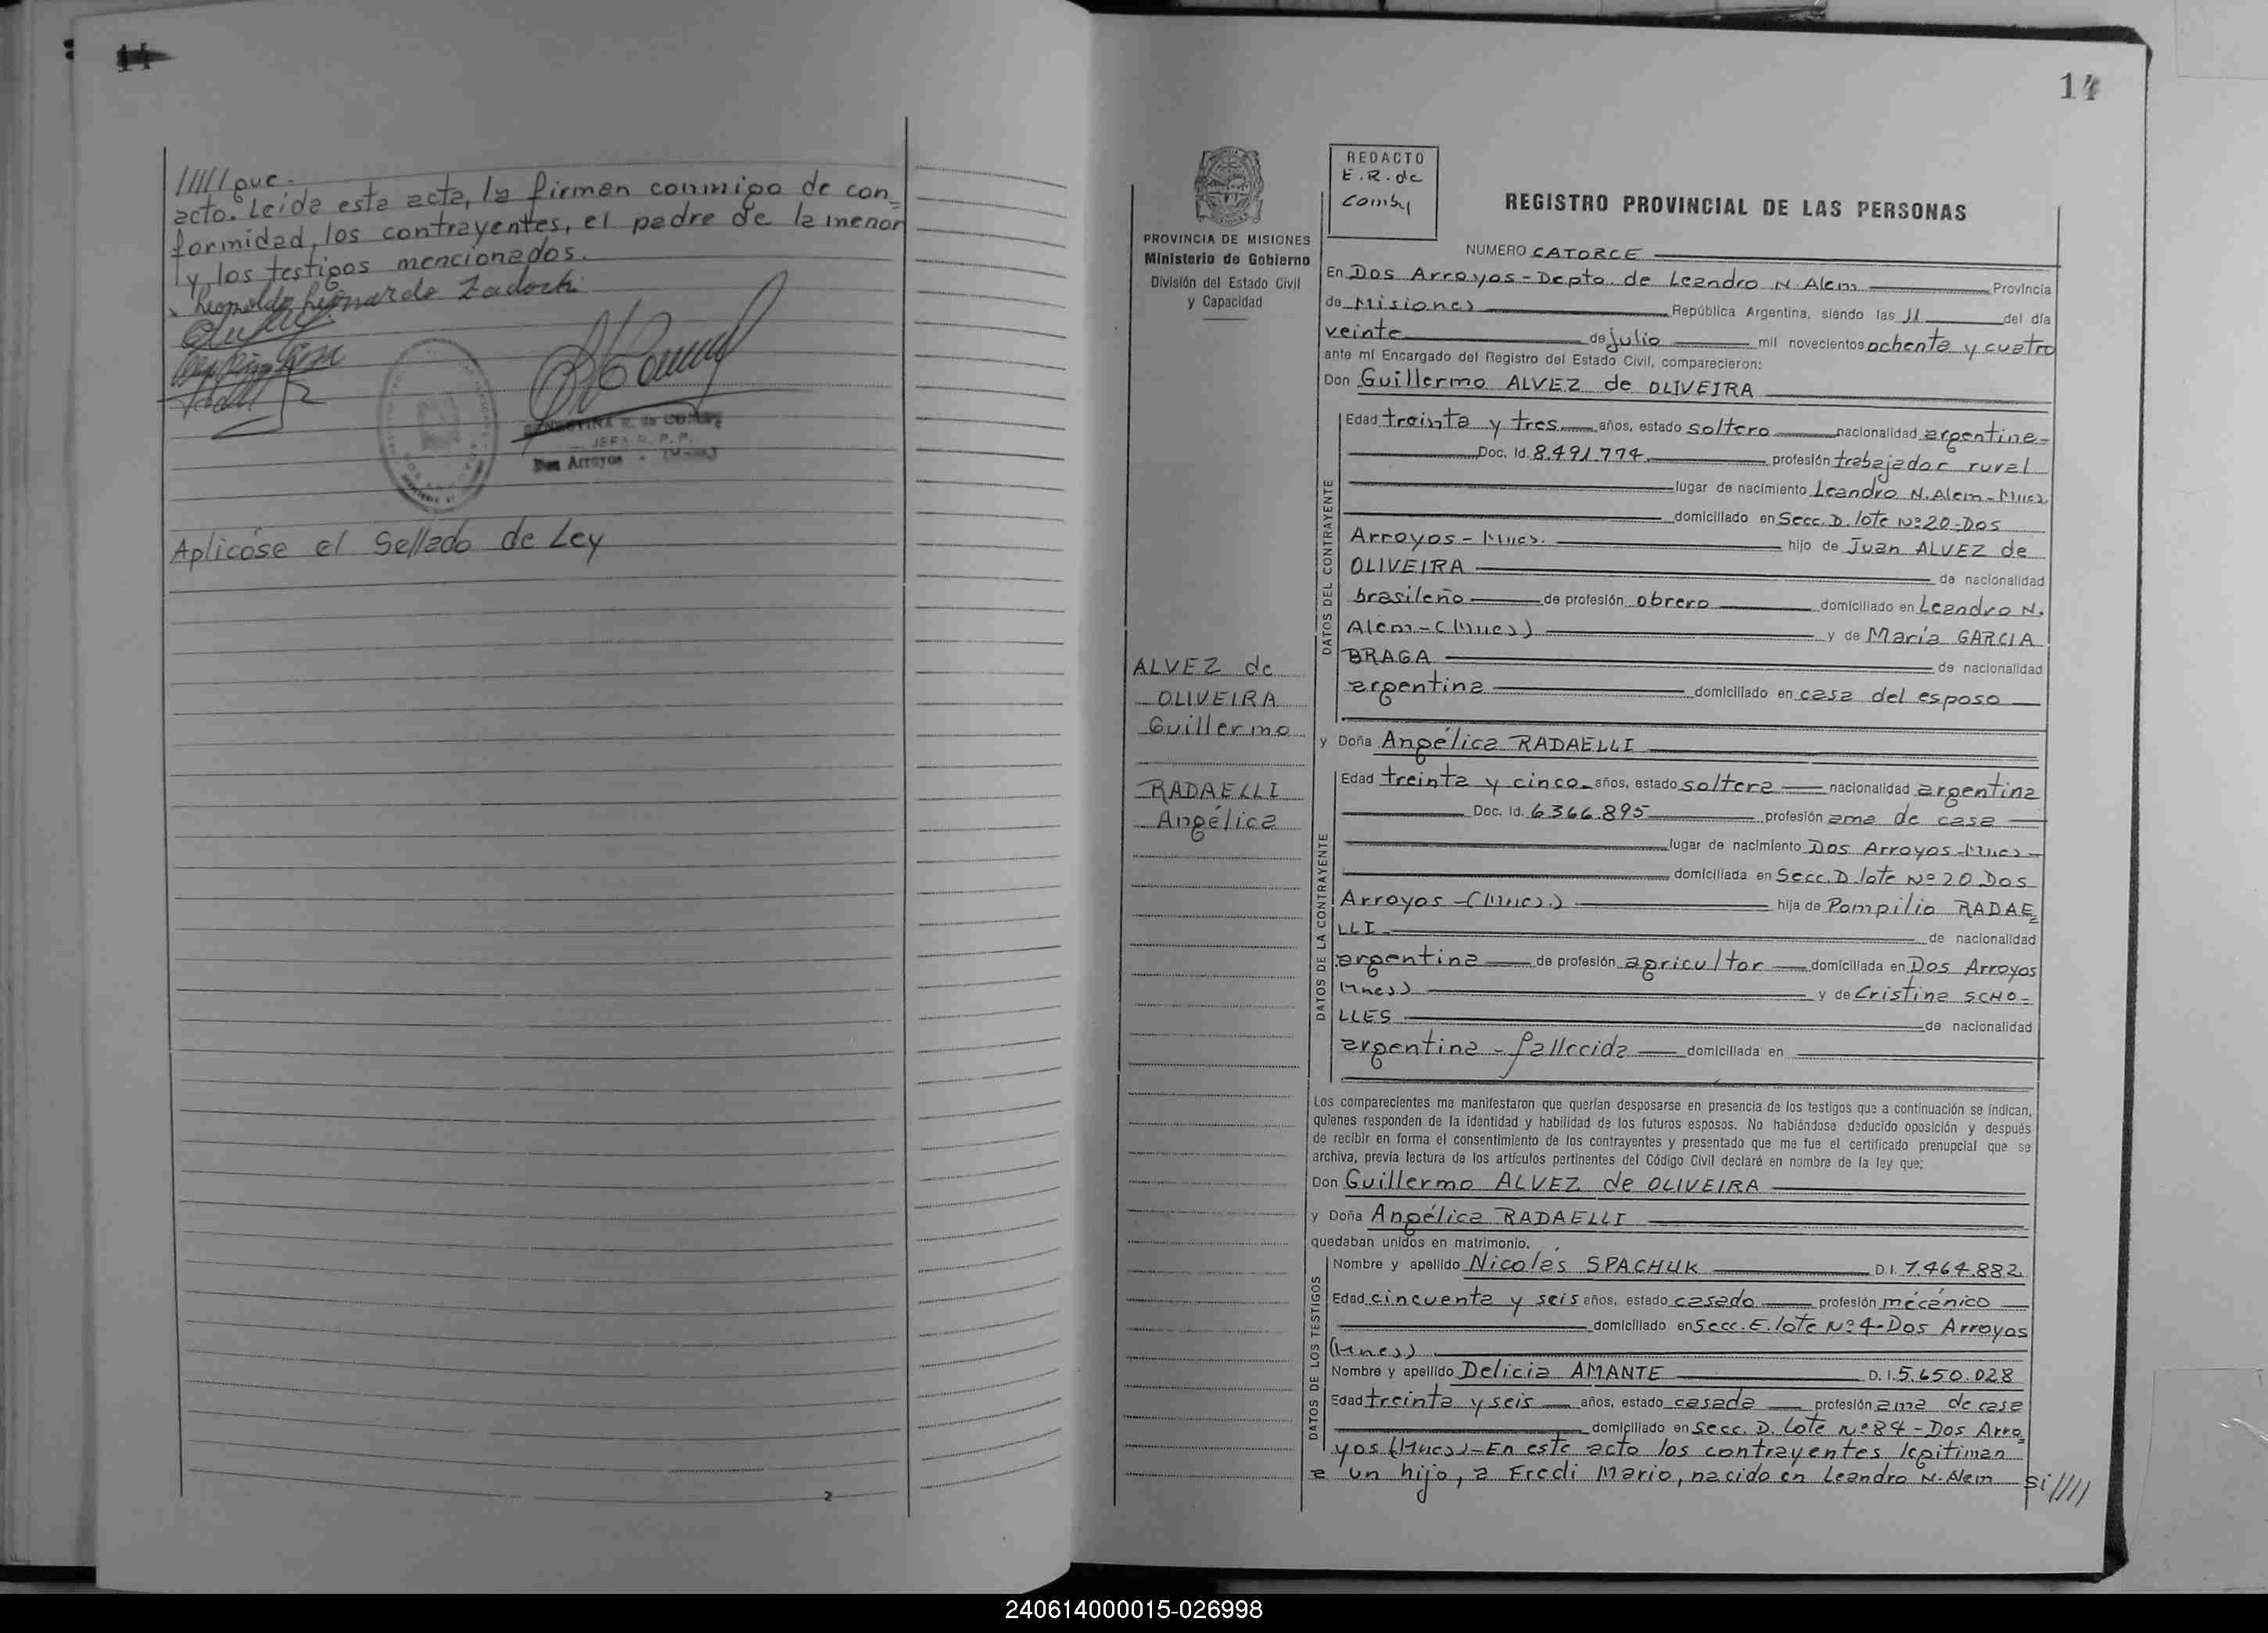 14
/////que.
acto. Leida esta acta, la firman conmigo de con=
formidad, los contrayentes, el padre de la menor
y los testigos mencionados.
Leopoldo Leonardo Zadorki
R. de COMBY
JEFA R. P. P.
Dos Arroyos
Aplicóse el Sellado de Ley
2
14
REDACTO
E.R. de
Comby
PROVINCIA DE MISIONES
Ministerio de Gobierno
División del Estado Civil
y Capacidad
REGISTRO PROVINCIAL DE LAS PERSONAS
NUMERO CATORCE
En Dos Arroyos - Depto. de Leandro N. Alem Provincia
de Misiones República Argentina, siendo las 11 del día
veinte de julio mil novecientos ochenta y cuatro
ante mí Encargado del Registro del Estado Civil, comparecieron:
Don Guillermo ALVEZ de OLIVEIRA
DATOS DEL CONTRAYENTE
Edad treinta y tres años, estado soltero nacionalidad argentina-
Doc. Id. 8.491.774 profesión trabajador rural
lugar de nacimiento Leandro N. Alem - Mnes
domiciliado en Secc. D. lote Nº 20-Dos
Arroyos - Mnes. hijo de Juan ALVEZ de
OLIVEIRA de nacionalidad
brasileño de profesión obrero domiciliado en Leandro N.
Alem-(Mnes) y de María GARCIA
BRAGA de nacionalidad
argentina domiciliado en casa del esposo
ALVEZ de
OLIVEIRA
Guillermo
RADAELLI
Angélica
y Doña Angélica RADAELLI
DATOS DE LA CONTRAYENTE
Edad treinta y cinco años, estado soltera nacionalidad argentina
Doc. Id. 6366.895 profesión ama de casa
lugar de nacimiento Dos Arroyos-Mnes-
domiciliada en Secc. D. lote Nº 20 Dos
Arroyos -(Mnes.) hija de Pompilio RADAE=
LLI de nacionalidad
argentina de profesión agricultor domiciliada en Dos Arroyos
Mnes) y de Cristina SCHO-
LLES de nacionalidad
argentina - fallecida domiciliada en
Los comparecientes me manifestaron que querían desposarse en presencia de los testigos que a continuación se indican,
quienes responden de la identidad y habilidad de los futuros esposos. No habiéndose deducido oposición y después
de recibir en forma el consentimiento de los contrayentes y presentado que me fue el certificado prenupcial que se
archiva, previa lectura de los artículos pertinentes del Código Civil declaré en nombre de la ley que;
Don Guillermo ALVEZ de OLIVEIRA
y Doña Angélica RADAELLI
quedaban unidos en matrimonio.
DATOS DE LOS TESTIGOS
Nombre y apellido Nicolás SPACHUK D.I. 7.464.882
Edad cincuenta y seis años, estado casado profesión mécanico
domiciliado en Secc. E. lote Nº 4-Dos Arroyos
(Mnes)
Nombre y apellido Delicia AMANTE D. I. 5.650.028
Edad treinta y seis años, estado casada profesión ama de casa
domiciliado en Secc. D. Lote Nº 84 - Dos Arro=
yos (Mnes)-En este acto los contrayentes legitiman
a un hijo, a Fredi Mario, nacido en Leandro N. Alem si////
240614000015-026998